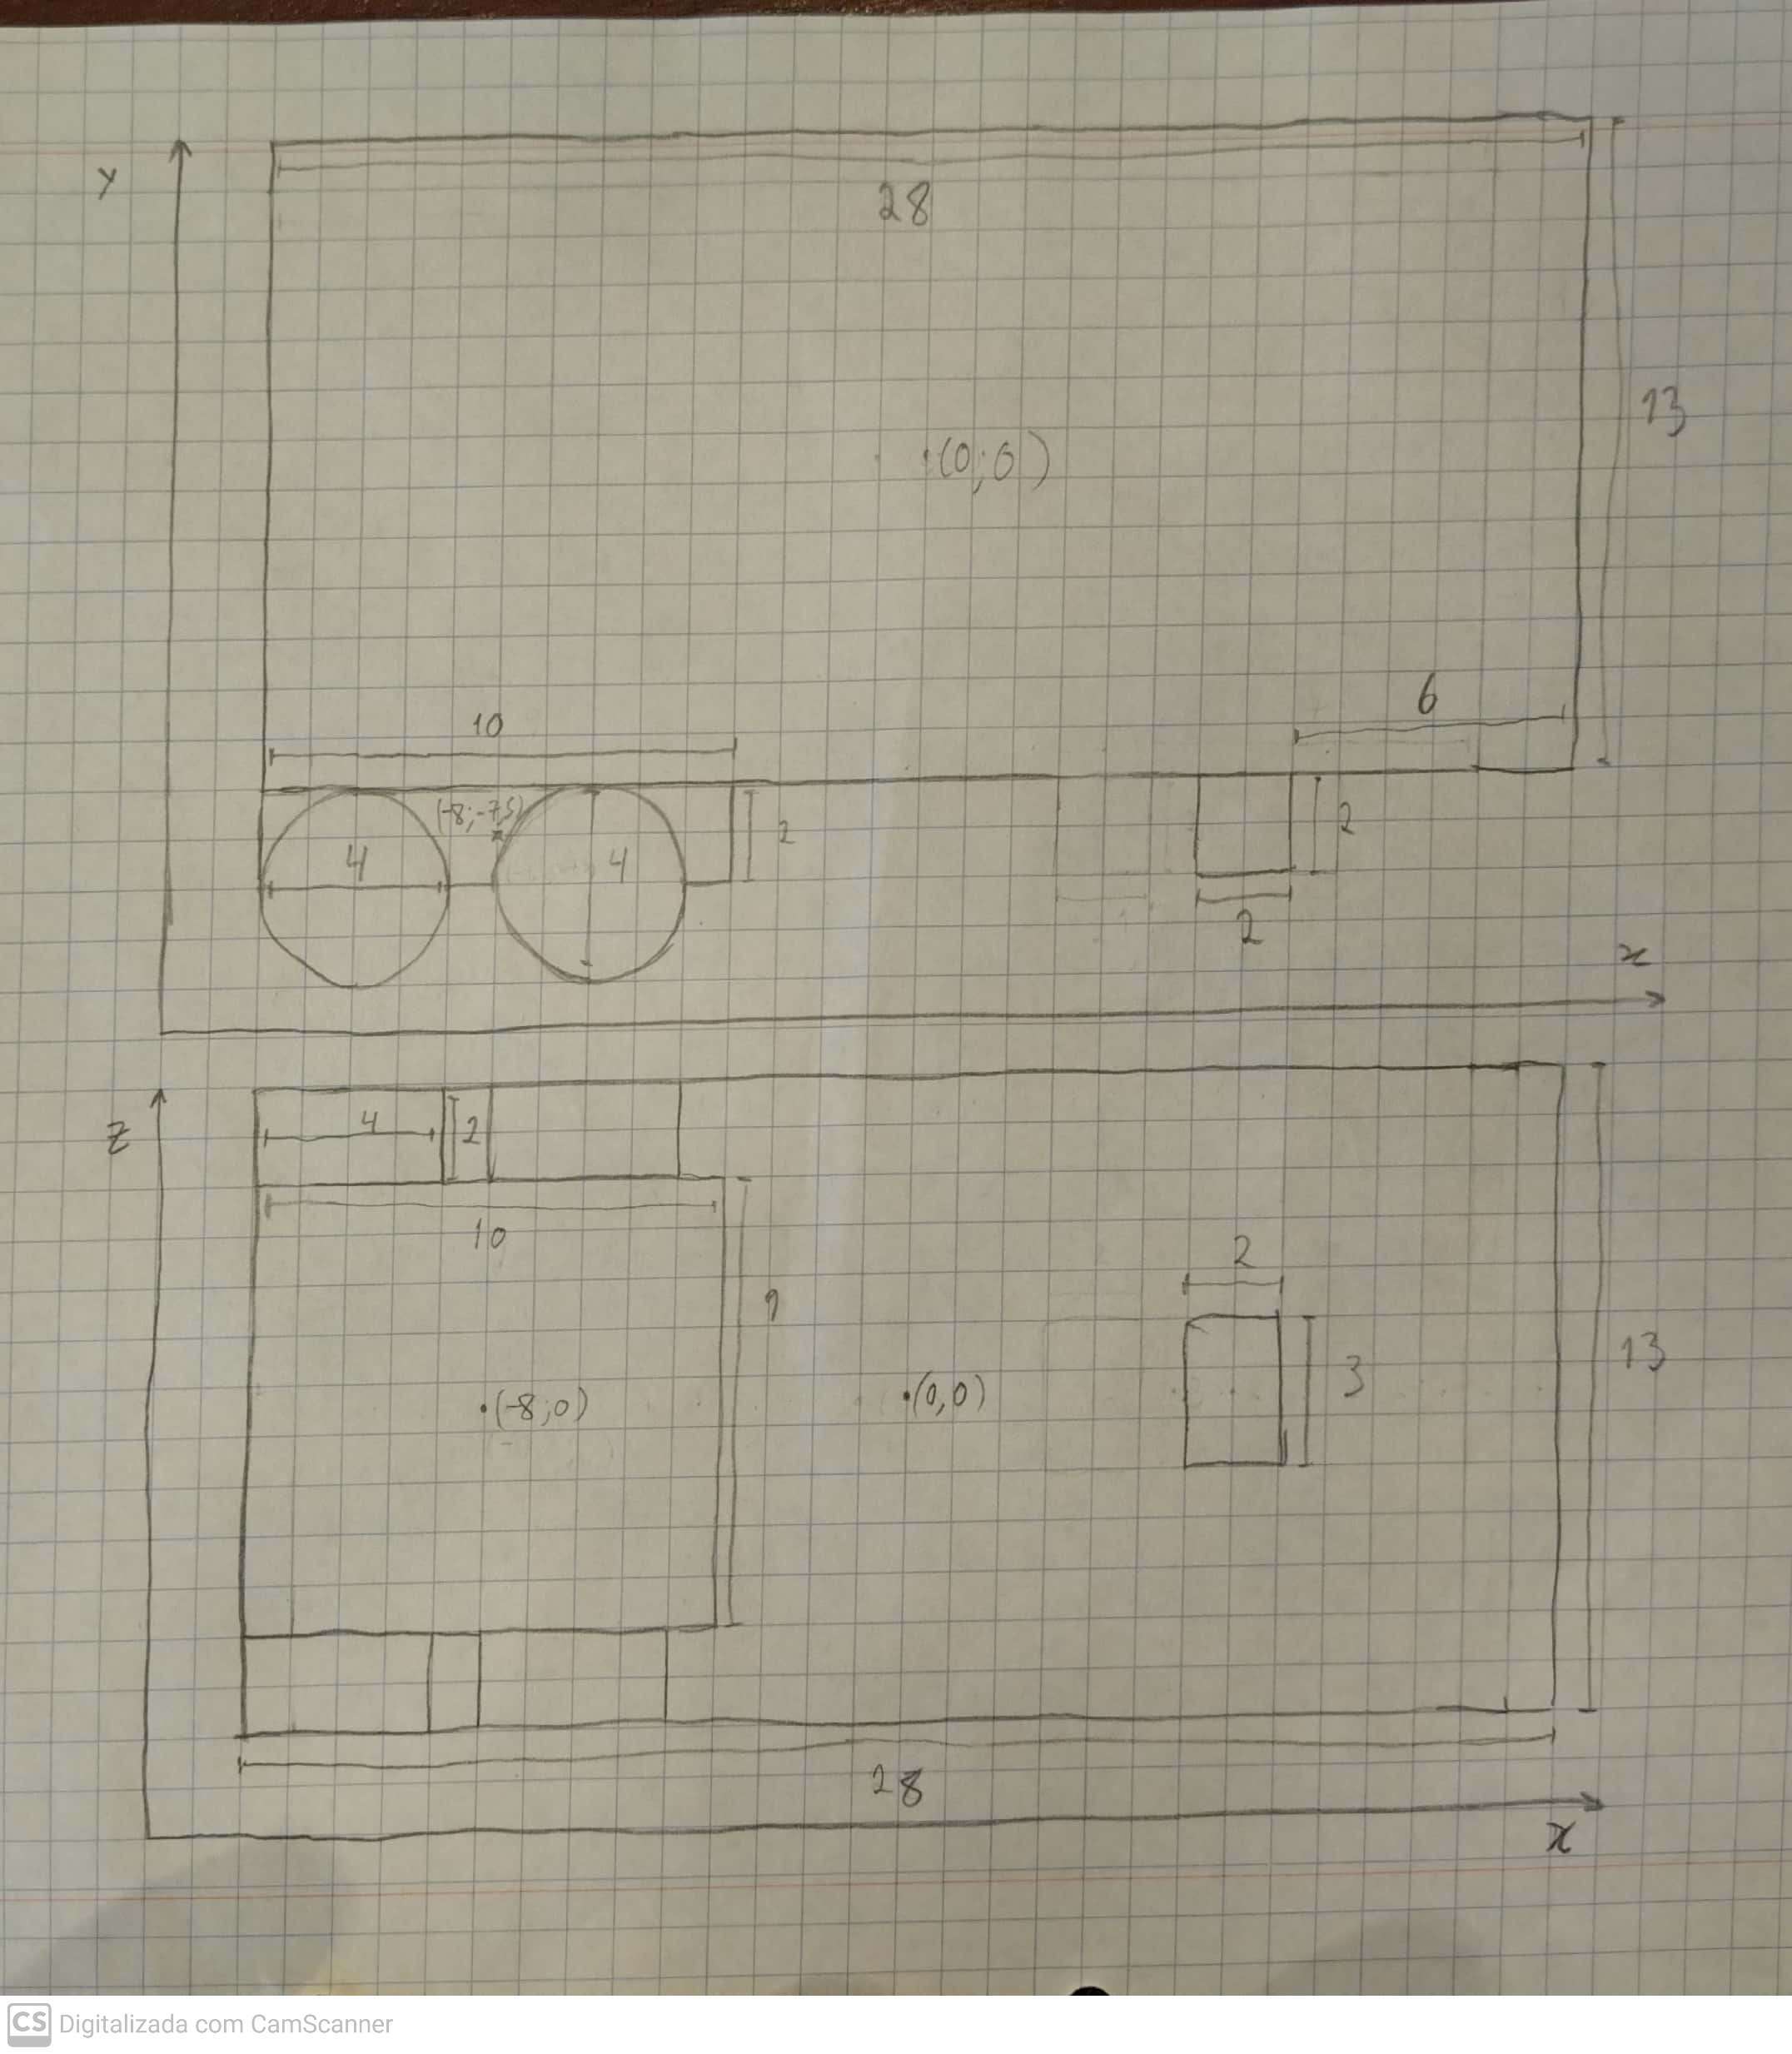 Y
28
13
(0;0)
6
10
(-8;-7,5)
4
4
2
2
2
x
z
4
2
10
2
9
3
13
(-8;0)
(0,0)
28
x
CS Digitalizada com CamScanner